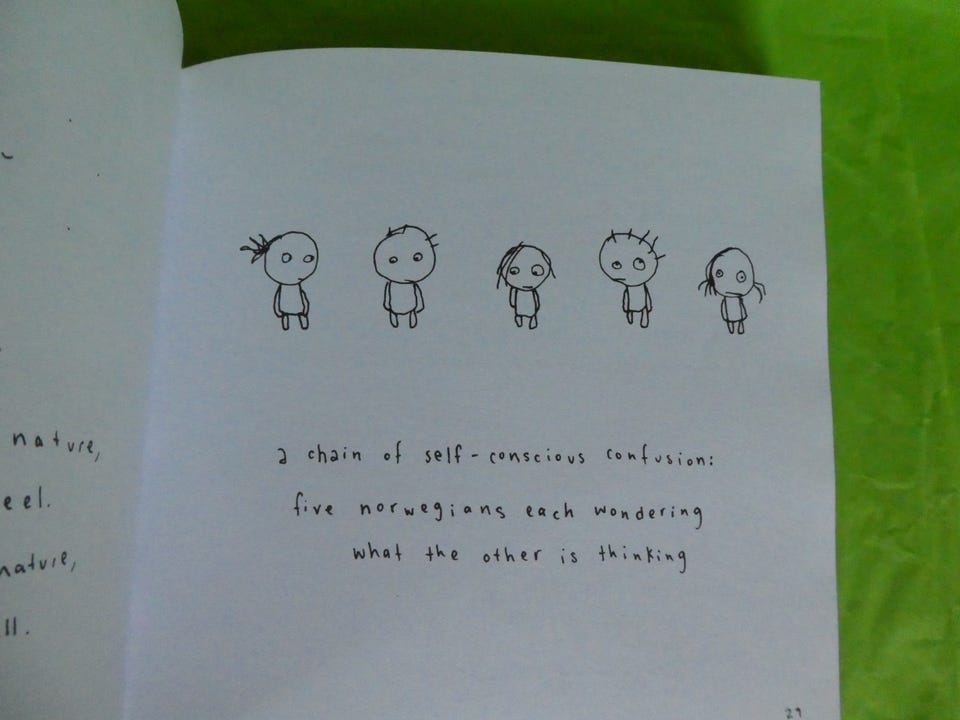 nature,
eel.
nature,
ll.
a chain of self-conscious confusion:
five norwegians each wondering
what the other is thinking